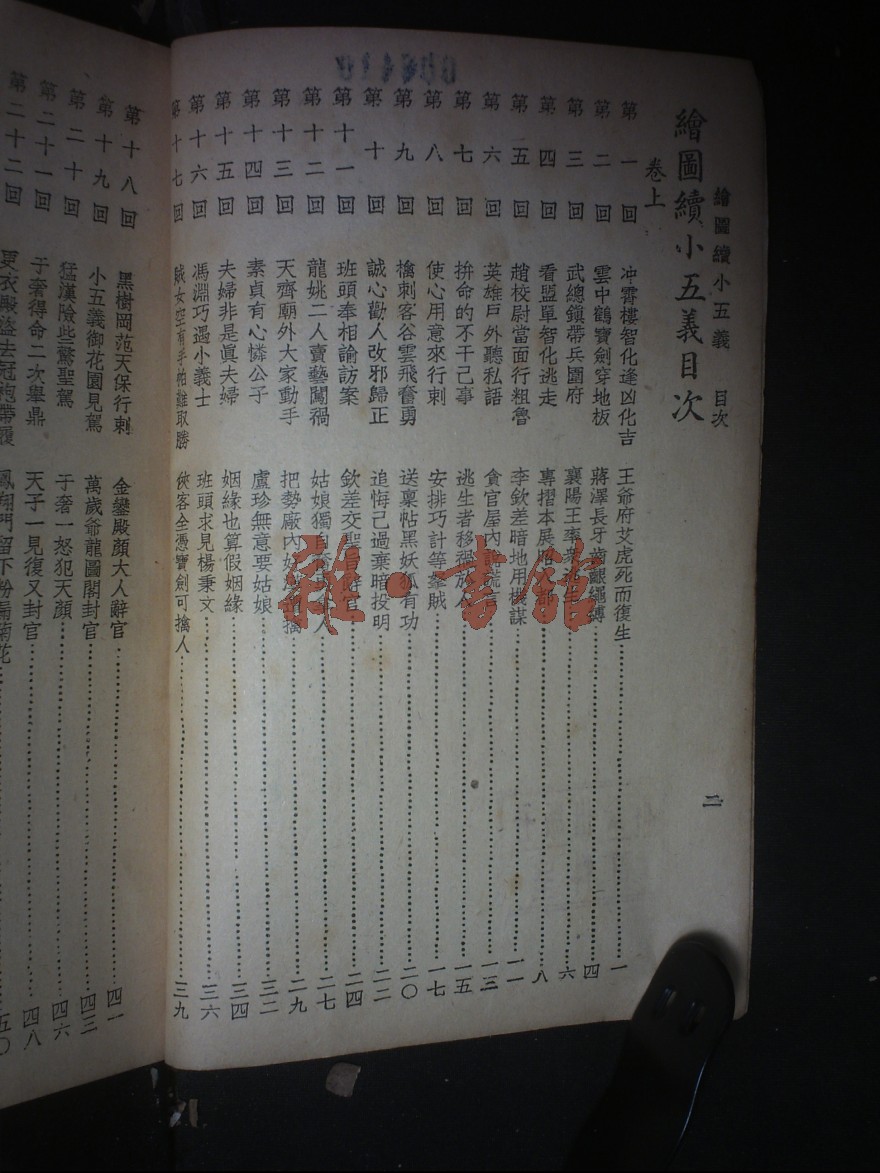 繪圖續小五義　目次
二
繪圖續小五義目次
卷上
第一回　冲霄樓智化逢凶化吉　王爺府艾虎死而復生　一
第二回　雲中鶴寶劍穿地板　蔣澤長牙齒齦繩縛　四
第三回　武總鎮帶兵圍府　襄陽王率衆　六
第四回　看盟單智化逃走　專摺本展　八
第五回　趙校尉當面行粗魯　李欽差暗地用機謀　一一
第六回　英雄戶外聽私語　貪官屋內　一三
第七回　拚命的不干己事　逃生者移禍　一五
第八回　使心用意來行刺　安排巧計等拿賊　一七
第九回　擒刺客谷雲飛奮勇　送稟帖黑妖狐有功　二〇
第十回　誠心勸人改邪歸正　追悔己過棄暗投明　二二
第十一回　班頭奉相諭訪案　欽差交聖旨辭官　二四
第十二回　龍姚二人賣藝闖禍　姑娘獨自　人　二七
第十三回　天齊廟外大家動手　把勢廠內　擒　二九
第十四回　素貞有心憐公子　盧珍無意要姑娘　三二
第十五回　夫婦非是眞夫婦　姻緣也算假姻緣　三四
第十六回　馮淵巧遇小義士　班頭求見楊秉文　三六
第十七回　賊女空有手帕難取勝　俠客全憑寶劍可擒人　三九
第十八回　黑樹岡范天保行刺　金鑾殿顏大人辭官　四一
第十九回　小五義御花園見駕　萬歲爺龍圖閣封官　四三
第二十回　猛漢險些驚聖駕　于奢一怒犯天顏　四六
第二十一回　于奢得命二次舉鼎　天子一見復又封官　四八
第二十二回　更衣殿盜去冠袍帶履　鳳翔門留下粉漏菊花　五〇
雜·書館